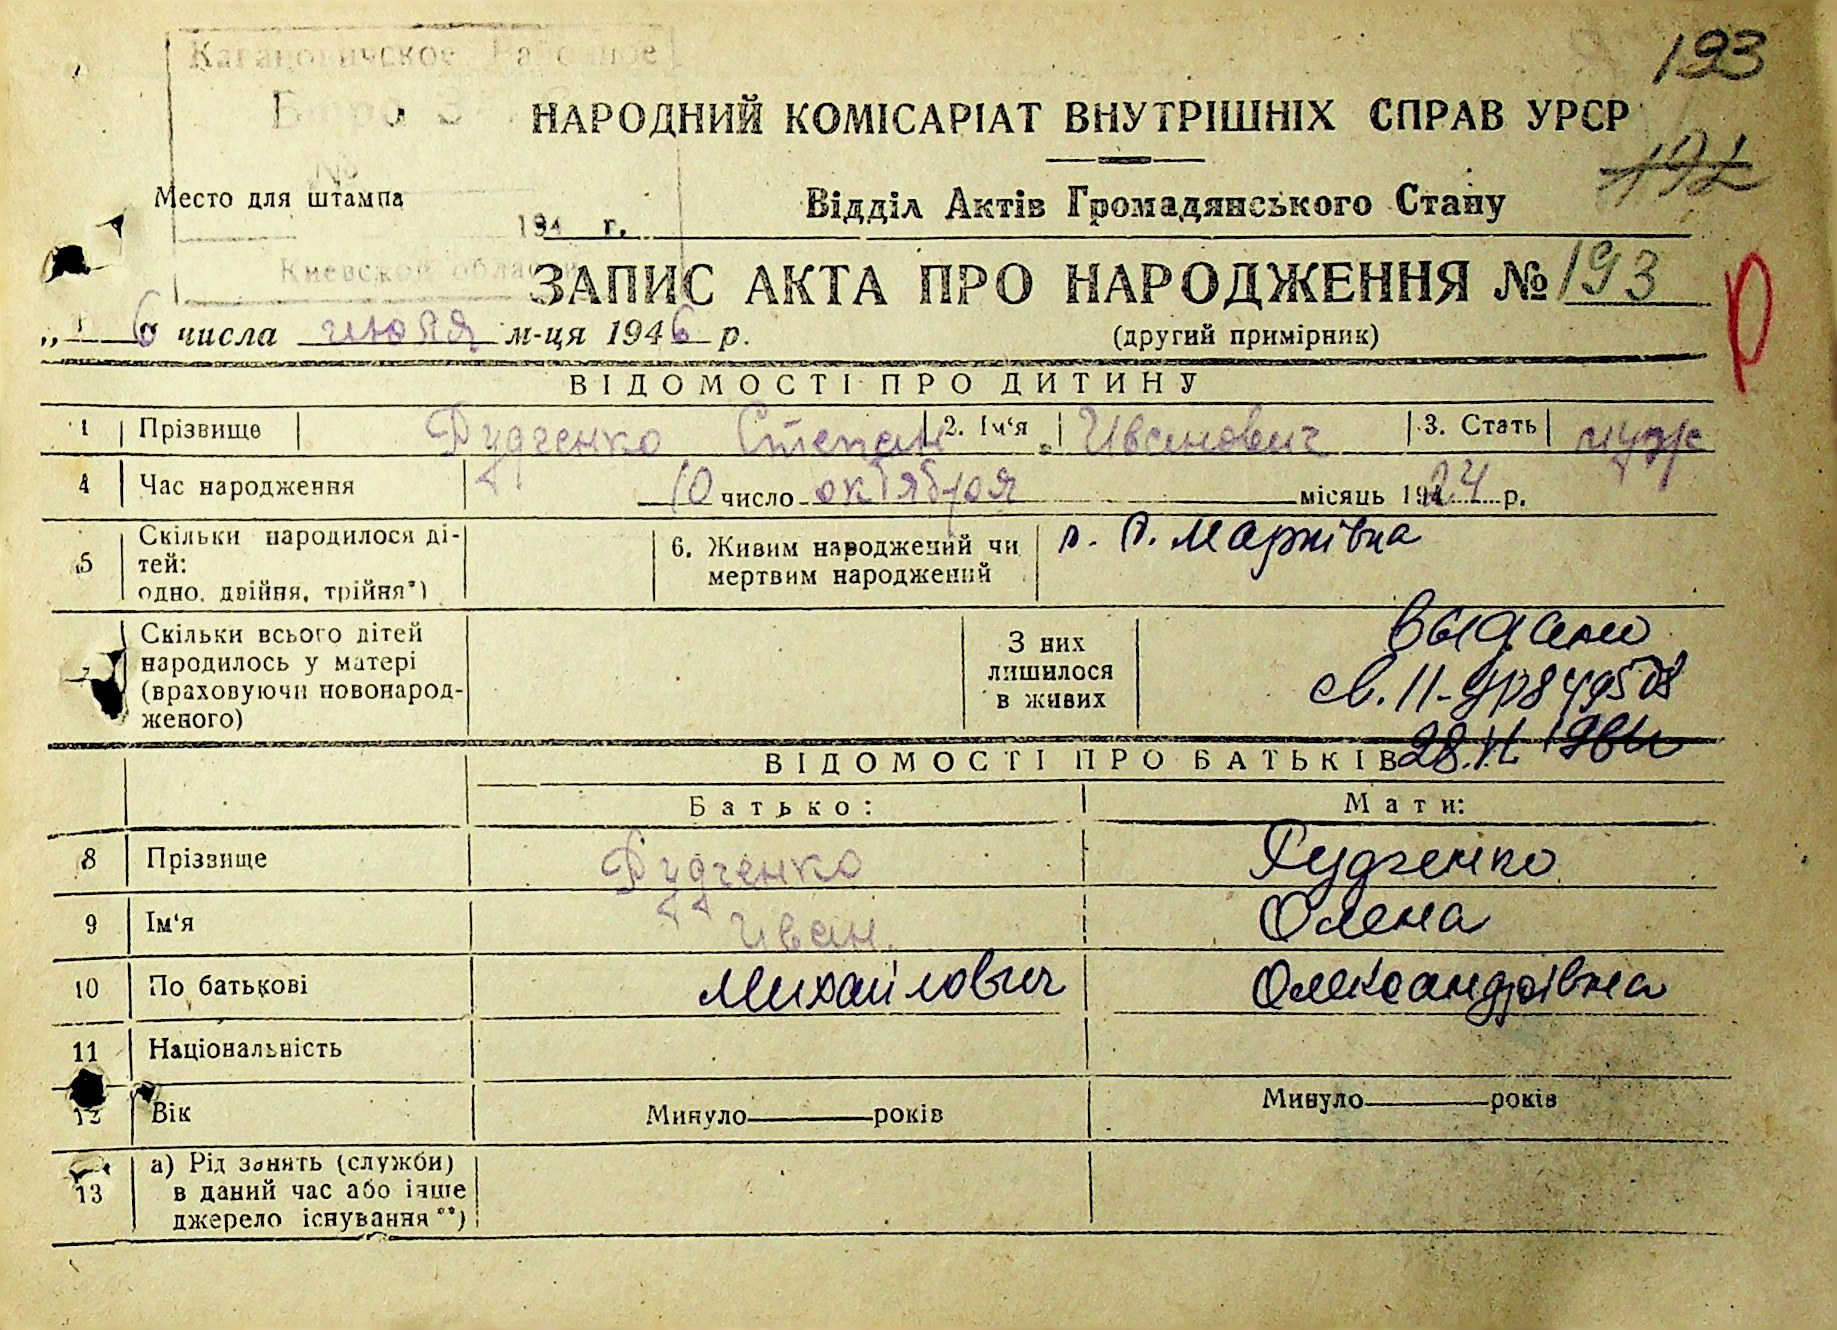 193
Кагановичское Районное
Бюро
№
НАРОДНИЙ КОМІСАРІАТ ВНУТРІШНІХ СПРАВ УРСР
192
Место для штампа
Відділ Актів Громадянського Стану
194 г.
Киевской области
ЗАПИС АКТА ПРО НАРОДЖЕННЯ № 193
„ 6 " числа июля м-ця 1946 р.
(другий примірник)
р
ВІДОМОСТІ ПРО ДИТИНУ
1 Прізвище Рудченко Степан 2. Ім‘я Иванович 3. Стать муж
4 Час народження 10 число октября місяць 1924 р.
5 Скільки народилося ді-
тей:
одно, двійня, трійня*)
6. Живим народжений чи
мертвим народжений
Скільки всього дітей
народилось у матері
(враховуючи новонарод-
женого)
З них
лишилося
в живих
выдано
св. II-
ВІДОМОСТІ ПРО БАТЬКІВ
Батько: Мати:
8 Прізвище Рудченко Рудченко
9 Ім‘я Иван Олена
10 По батькові Михайлович Олександрівна
11 Національність
12 Вік Минуло років Минуло років
13 а) Рід занять (служби)
в даний час або інше
джерело існування**)